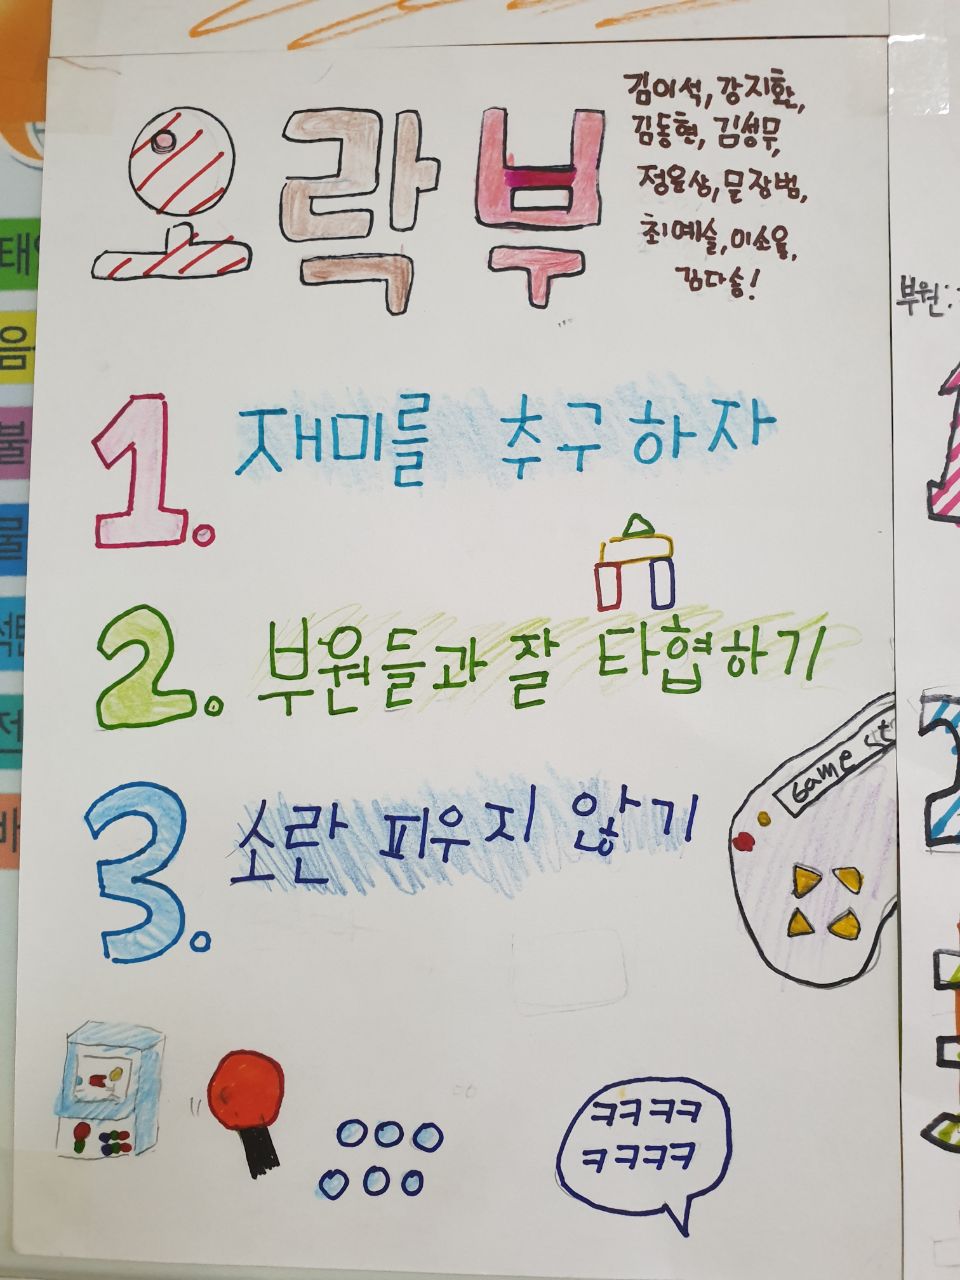 오락부
김이석, 강지환,
김동현, 김성무,
정윤상, 문장범,
최예슬, 이소율,
김다솜!
1. 재미를 추구하자
2. 부원들과 잘 타협하기
3. 소란 피우지 않기
Game st
ㅋㅋㅋㅋ
ㅋㅋㅋㅋ
부원:
음
불
물
저
바